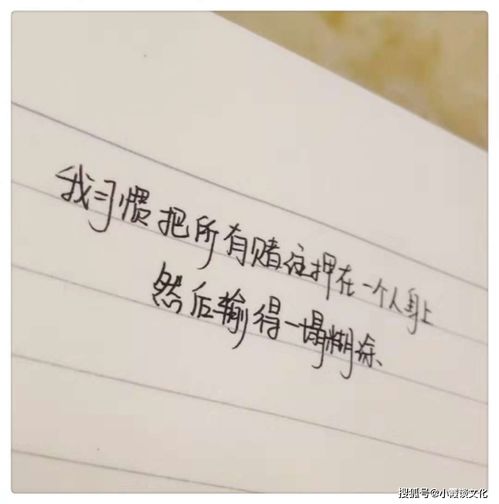 我习惯把所有赌注押在一个人身上
然后输得一塌糊涂、
搜狐号@小嘴谈文化